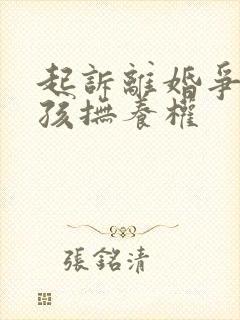 起訴離婚爭
孩撫養權
張銘清